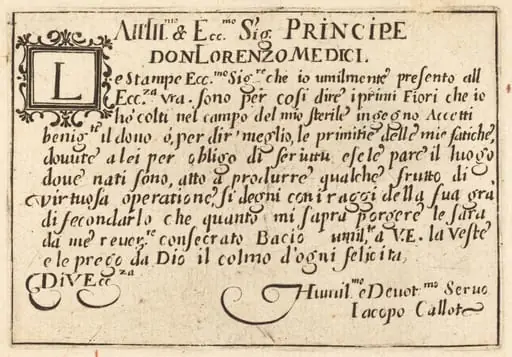 All Ill.mo & Ecc.mo Sig. PRINCIPE
DON LORENZO MEDICI.
Le Stampe Ecc.mo Sig.re che io umilmente presento all
Ecc.za vra. sono per cosi dire i primi Fiori che io
ho colti nel campo del mio sterile ingegno Accetti
benig.te il dono ó, per dir' meglio, le primitie delle mie fatiche,
douute a lei per obligo di seruitu, e se le pare il luogo
doue nati sono, atto a produrre qualche frutto di
virtuosa operatione, si degni con i raggi della sua gra
di fecondarlo che quanto mi sapra porgere le sara
da me reuer.te consecrato Bacio umil.te a V.E. la veste
e le prego da Dio il colmo d'ogni felicita,
Di V. Ecc.za
Humil.mo e Deuot.mo Seruo
Iacopo Callot